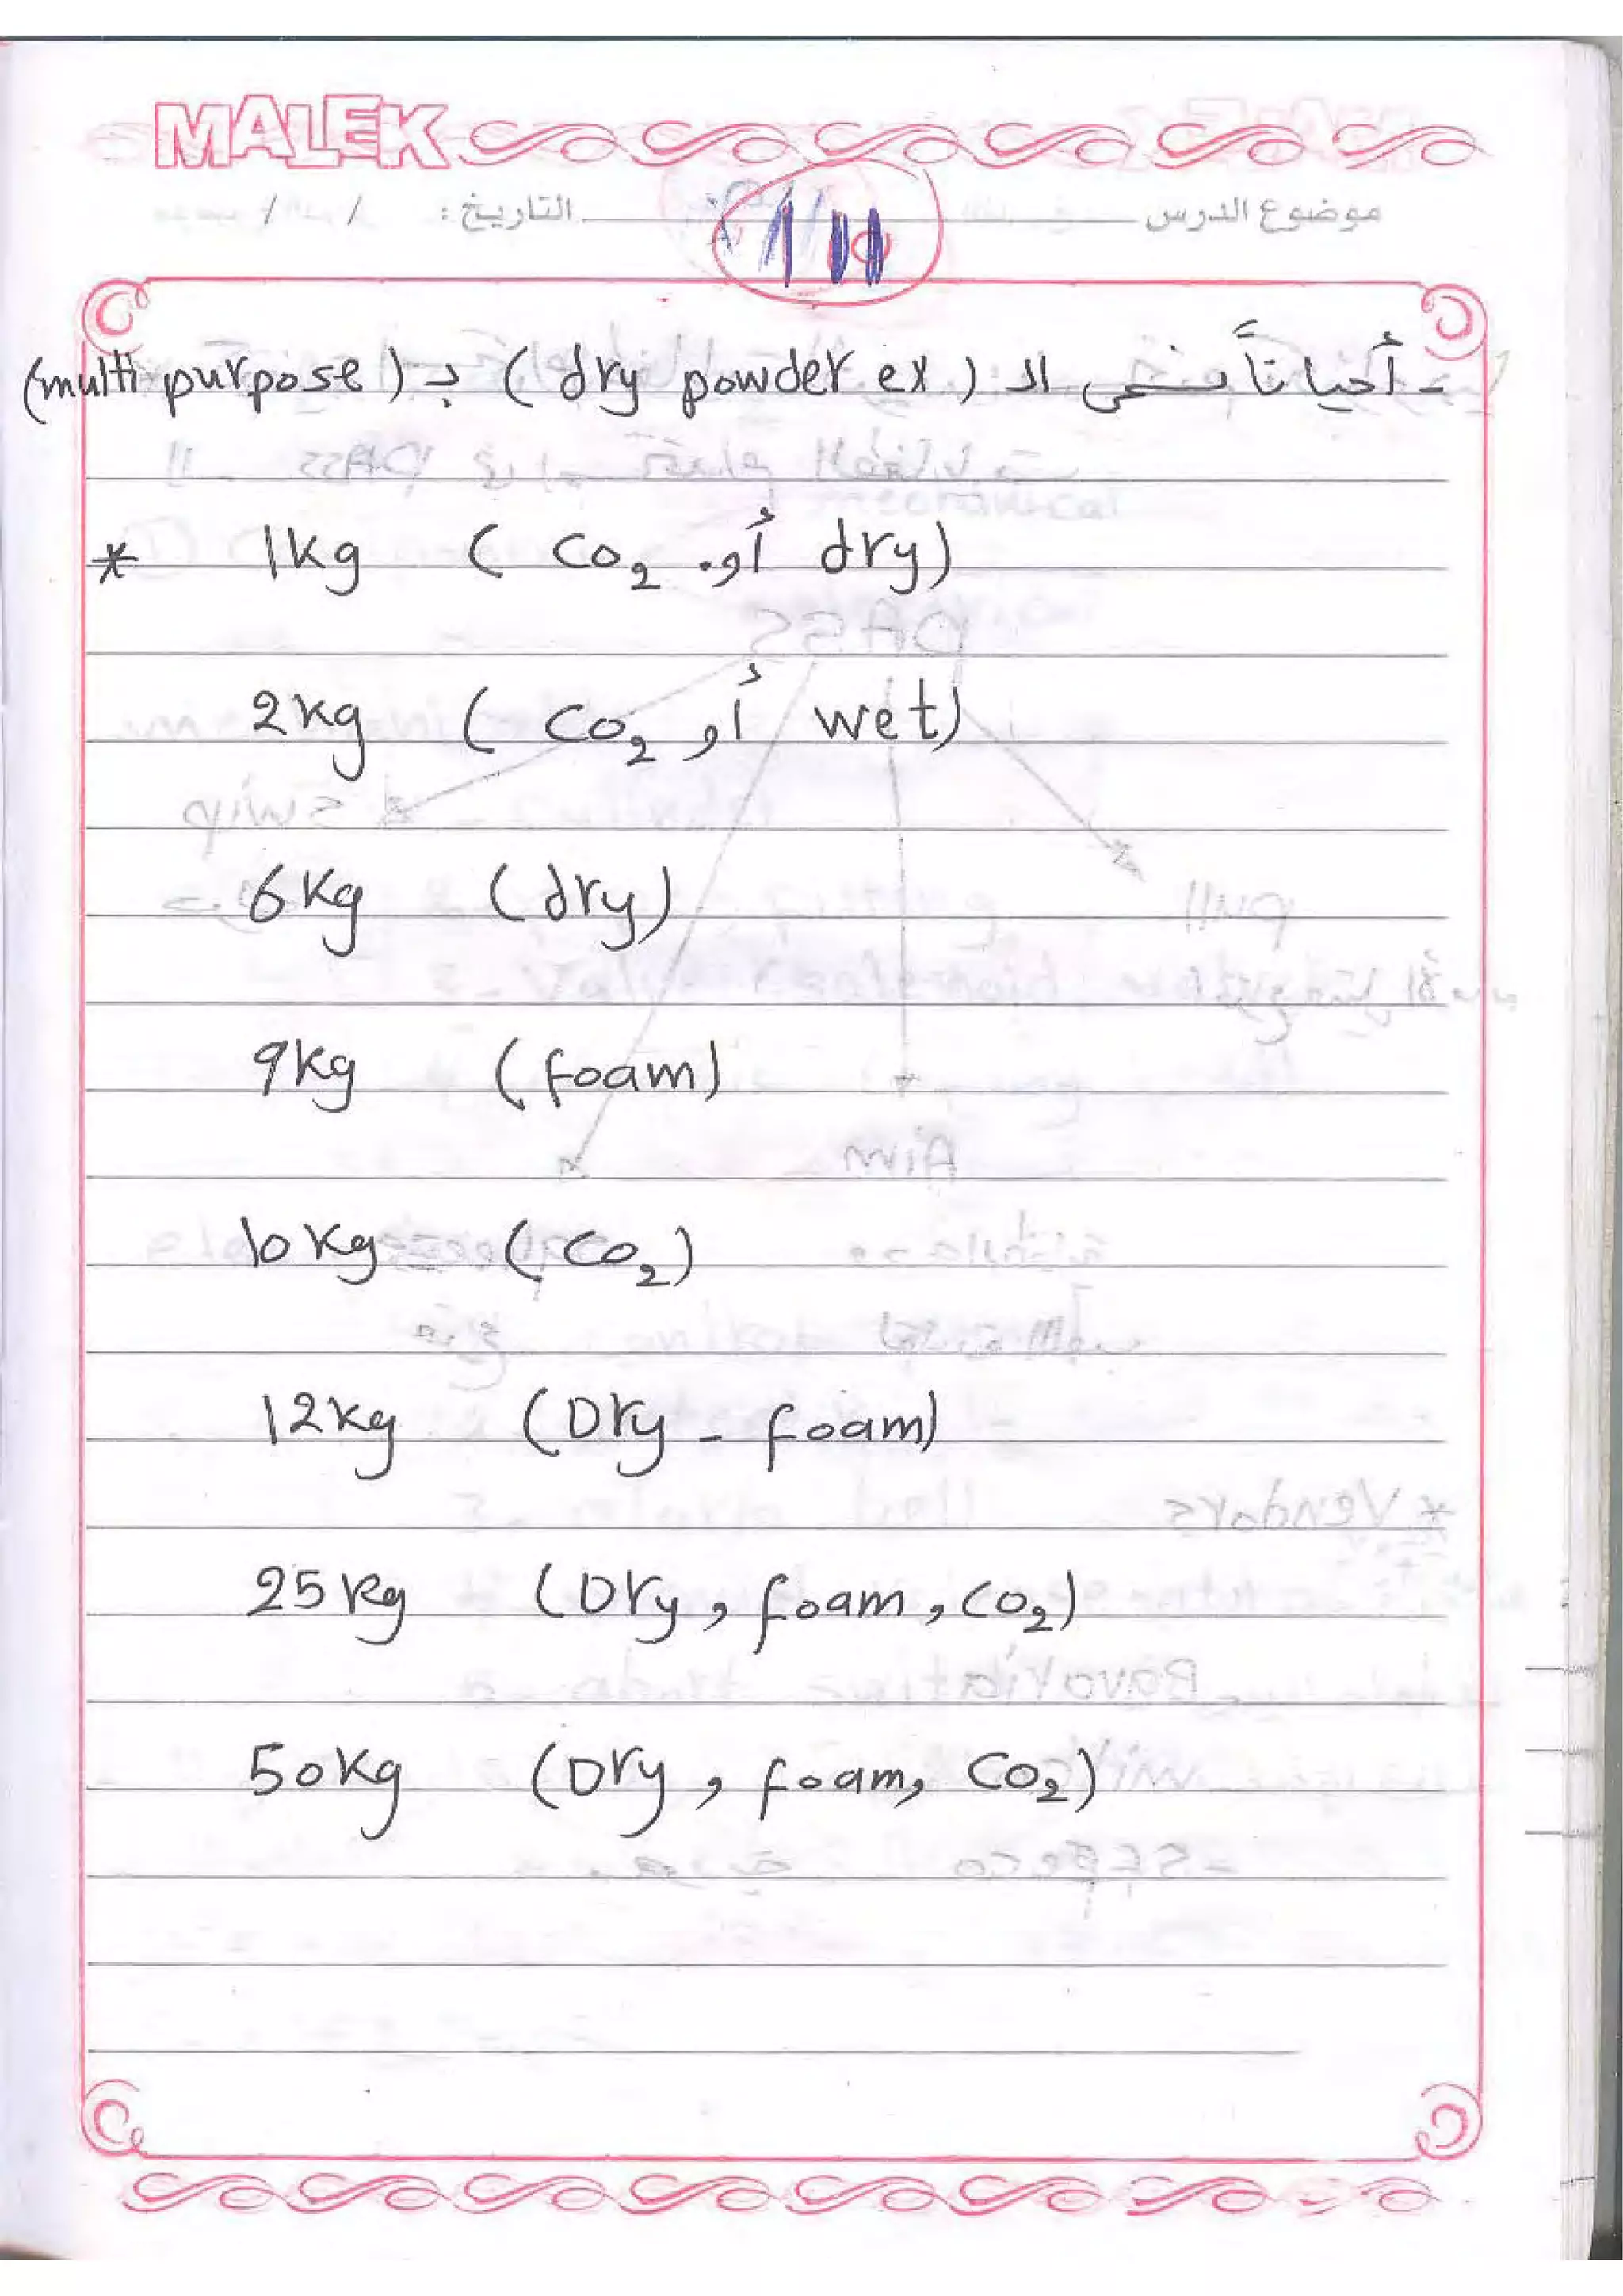 MALEK
موضوع الدرس التاريخ : / /
- أحياناً نسمى الـ (dry powder ex) بـ (multi purpose)
* 1kg (CO₂ أو dry)
2kg (CO₂ أو wet)
6kg (dry)
9kg (foam)
10kg (CO₂)
12kg (Dry - foam)
25kg (Dry, foam, CO₂)
50kg (Dry, foam, CO₂)